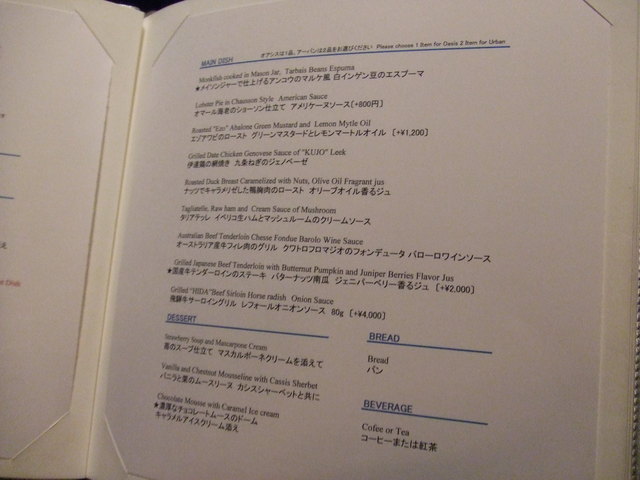 MAIN DISH
オアシスは1品、アーバンは2品をお選びください Please choose 1 Item for Oasis 2 Item for Urban
Monkfish cooked in Mason Jar, Tarbais Beans Espuma
★メイソンジャーで仕上げるアンコウのマルケ風 白インゲン豆のエスプーマ
Lobster Pie in Chausson Style American Sauce
オマール海老のショーソン仕立て アメリケーヌソース[+800円]
Roasted "Ezo" Abalone Green Mustard and Lemon Mytle Oil
エゾアワビのロースト グリーンマスタードとレモンマートルオイル [+¥1,200]
Grilled Date Chicken Genovese Sauce of "KUJO" Leek
伊達鶏の網焼き 九条ねぎのジェノベーゼ
Roasted Duck Breast Caramelized with Nuts, Olive Oil Fragrant jus
ナッツでキャラメリゼした鴨胸肉のロースト オリーブオイル香るジュ
Tagliatelle, Raw ham and Cream Sauce of Mushroom
タリアテッレ イベリコ生ハムとマッシュルームのクリームソース
Australian Beef Tenderloin Chesse Fondue Barolo Wine Sauce
オーストラリア産牛フィレ肉のグリル クワトロフロマジオのフォンデュータ バローロワインソース
Grilled Japanese Beef Tenderloin with Butternut Pumpkin and Juniper Berries Flavor Jus
★国産牛テンダーロインのステーキ バターナッツ南瓜 ジェニパーベリー香るジュ [+¥2,000]
Grilled "HIDA"Beef Sirloin Horse radish Onion Sauce
飛騨牛サーロイングリル レフォールオニオンソース 80g [+¥4,000]
DESSERT
Strawberry Soup and Mascarpone Cream
苺のスープ仕立て マスカルポーネクリームを添えて
Vanilla and Chestnut Mousseline with Cassis Sherbet
バニラと栗のムースリーヌ カシスシャーベットと共に
Chocolate Mousse with Caramel Ice cream
★濃厚なチョコレートムースのドーム
キャラメルアイスクリーム添え
BREAD
Bread
パン
BEVERAGE
Cofee or Tea
コーヒーまたは紅茶